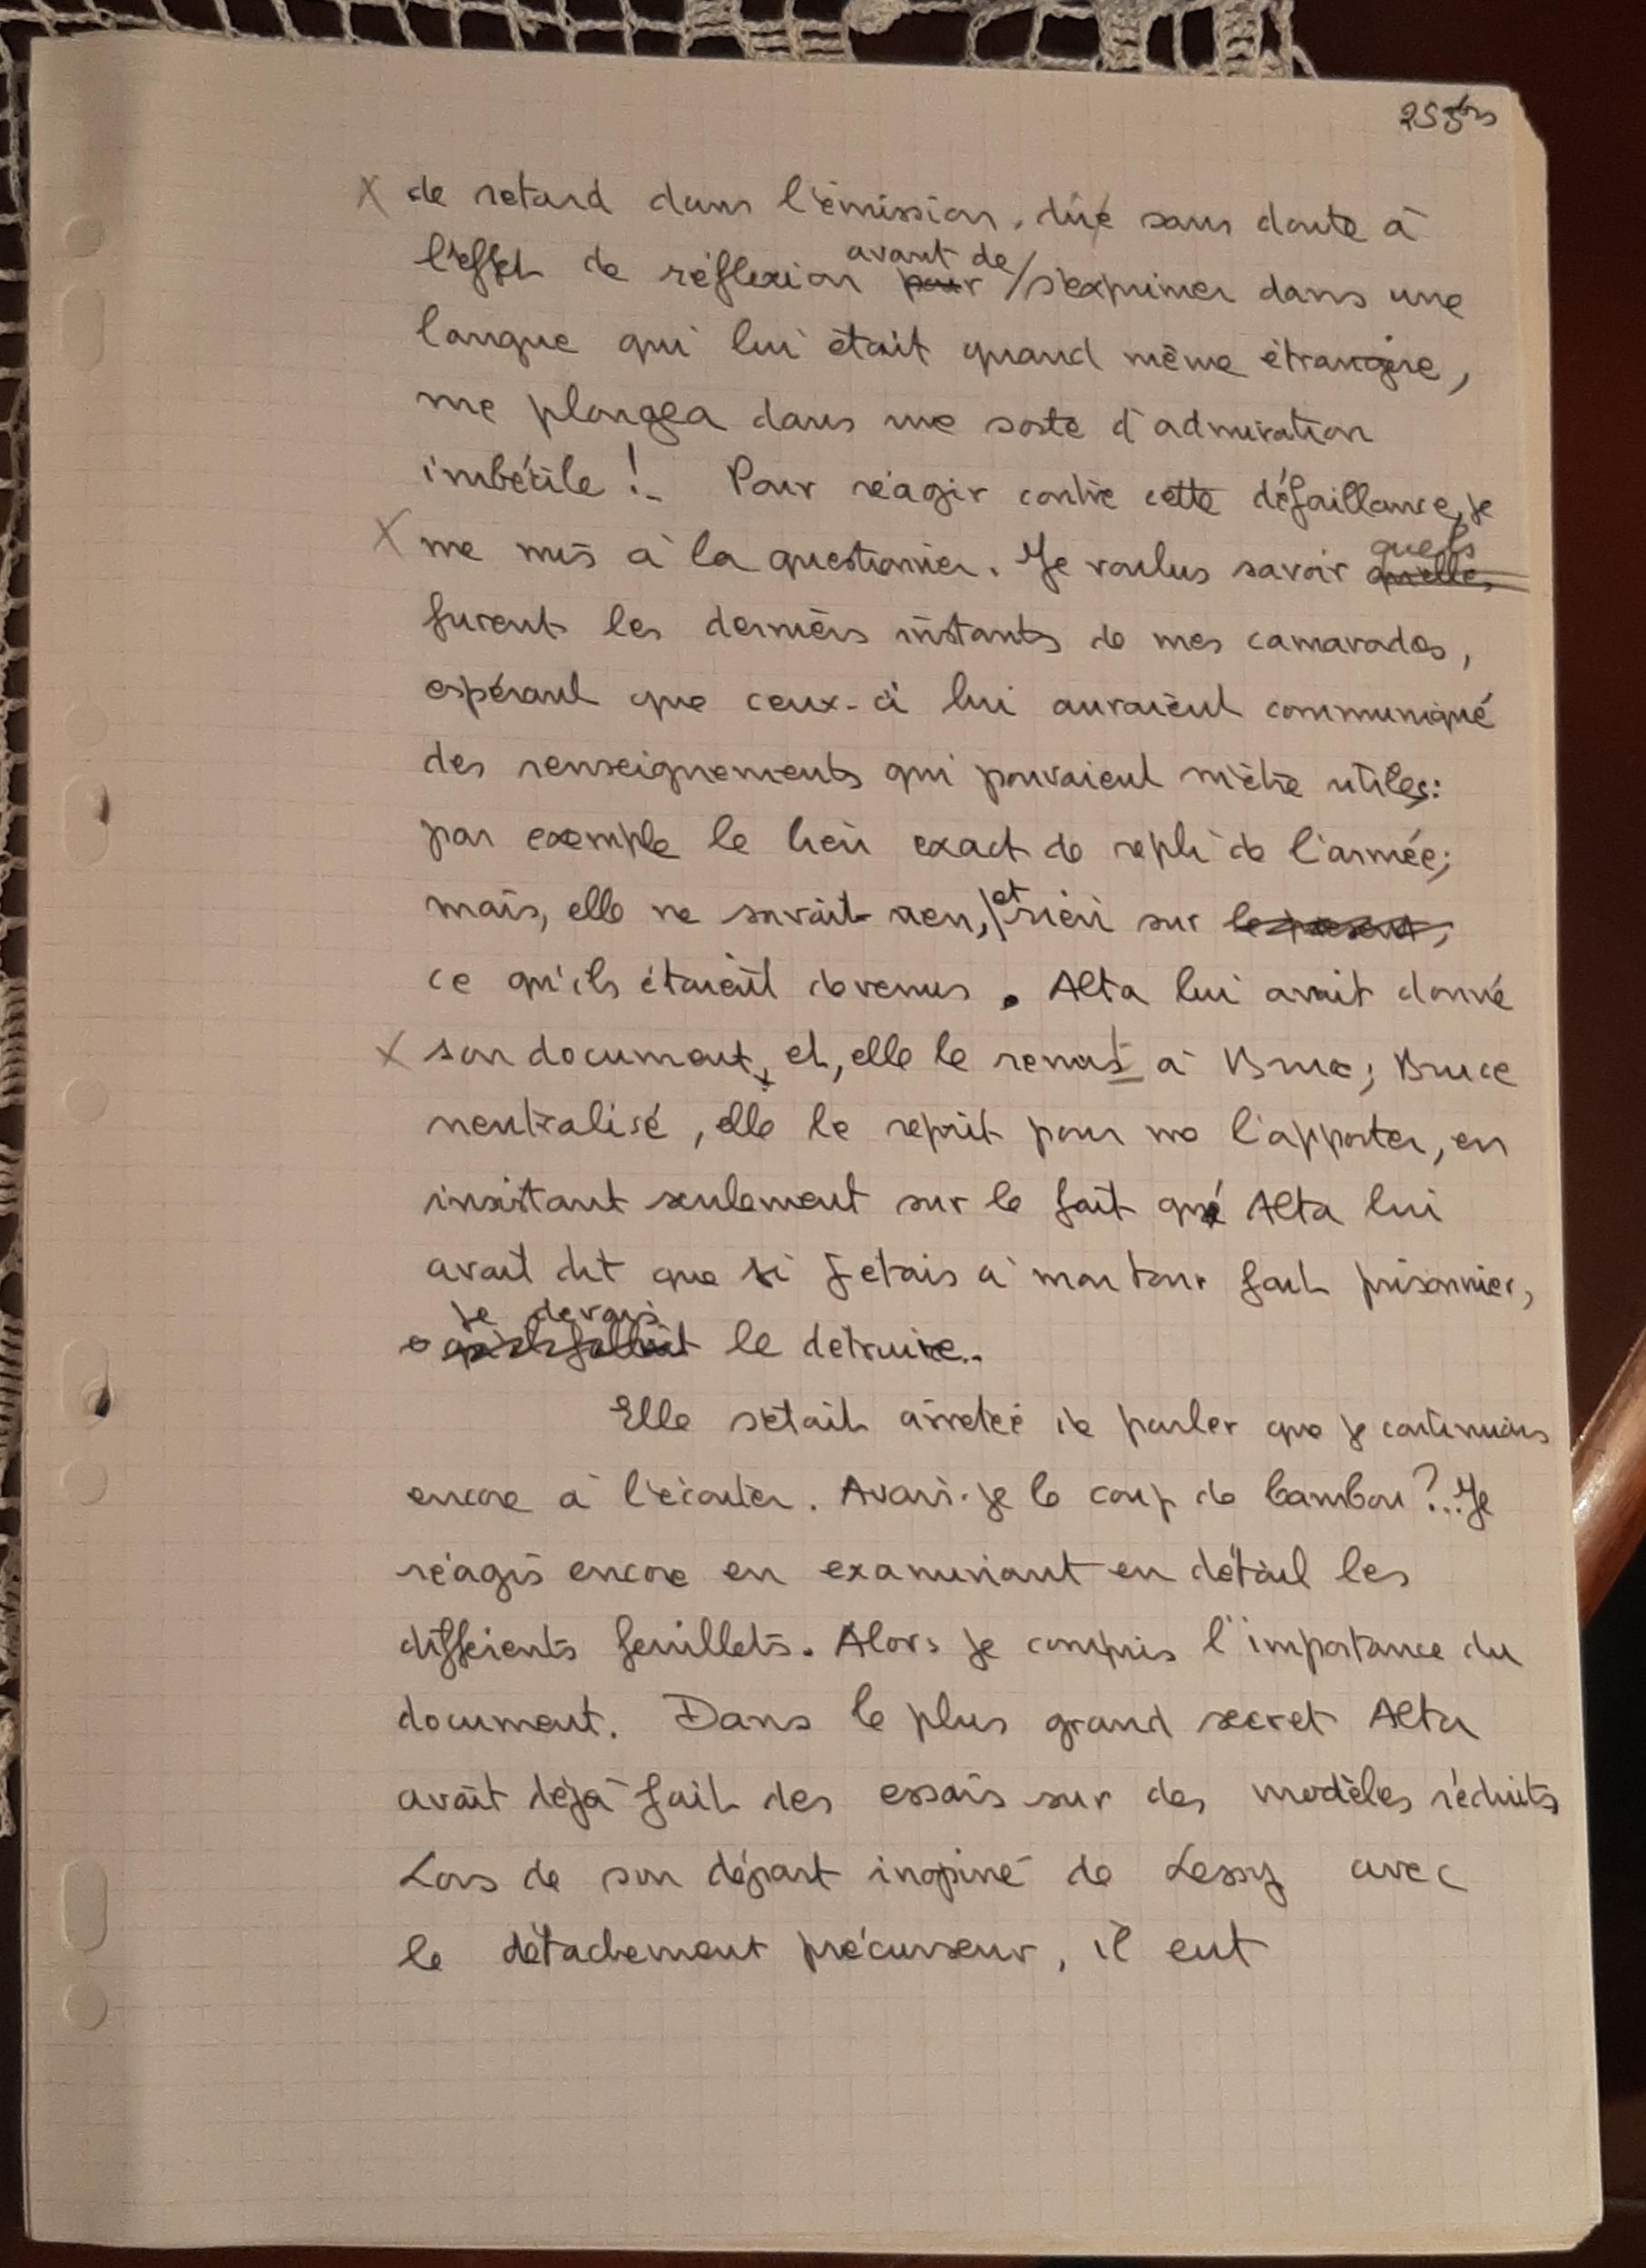 255 bis
X de retard dans l'émission, dûe sans doute à
l'effet de réflexion avant de s'exprimer dans une
langue qui lui était quand même étrangère,
me plongea dans une sorte d'admiration
imbécile !_ Pour réagir contre cette défaillance, je
X me mis à la questionner. Je voulus savoir quels
furent les derniers instants de mes camarades,
espérant que ceux-ci lui auraient communiqué
des renseignements qui pouvaient m'être utiles:
par exemple le lieu exact de repli de l'armée;
mais, elle ne savait rien, et rien sur
ce qu'ils étaient devenus. Alta lui avait donné
X son document, et, elle le remit à Bruce; Bruce
neutralisé, elle le reprit pour me l'apporter, en
insistant seulement sur le fait que Alta lui
avait dit que si j'étais à mon tour fait prisonnier,
je devais le détruire..
Elle s'était arretée de parler que je continuais
encore à l'écouter. Avais-je le coup de bambou ?... Je
réagis encore en examinant en détail les
différents feuillets. Alors je compris l'importance du
document. Dans le plus grand secret Alta
avait déjà fait des essais sur des modèles réduits
Lors de son départ inopiné de Lessy avec
le détachement précurseur, il eut